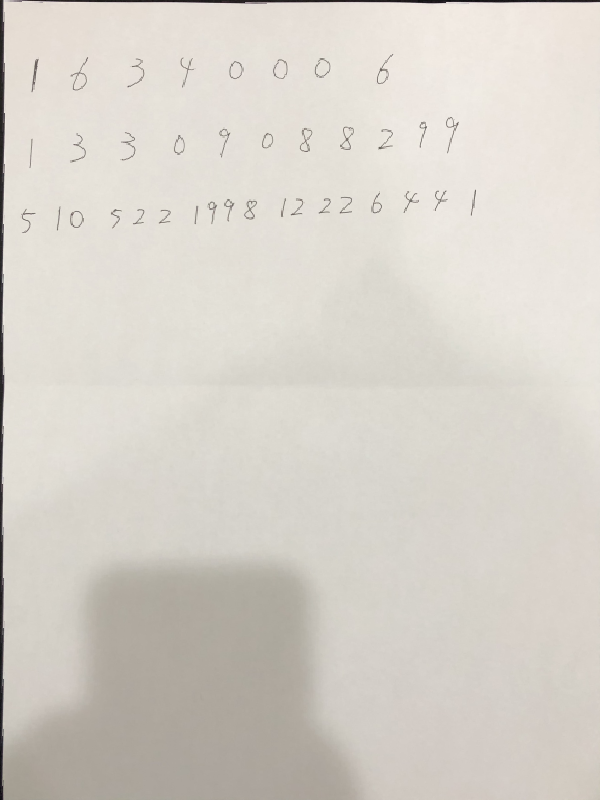 1 6 3 4 0 0 0 6
1 3 3 0 9 0 8 8 2 9 9
5 10 5 2 2 1998 12 222 6 4 4 1